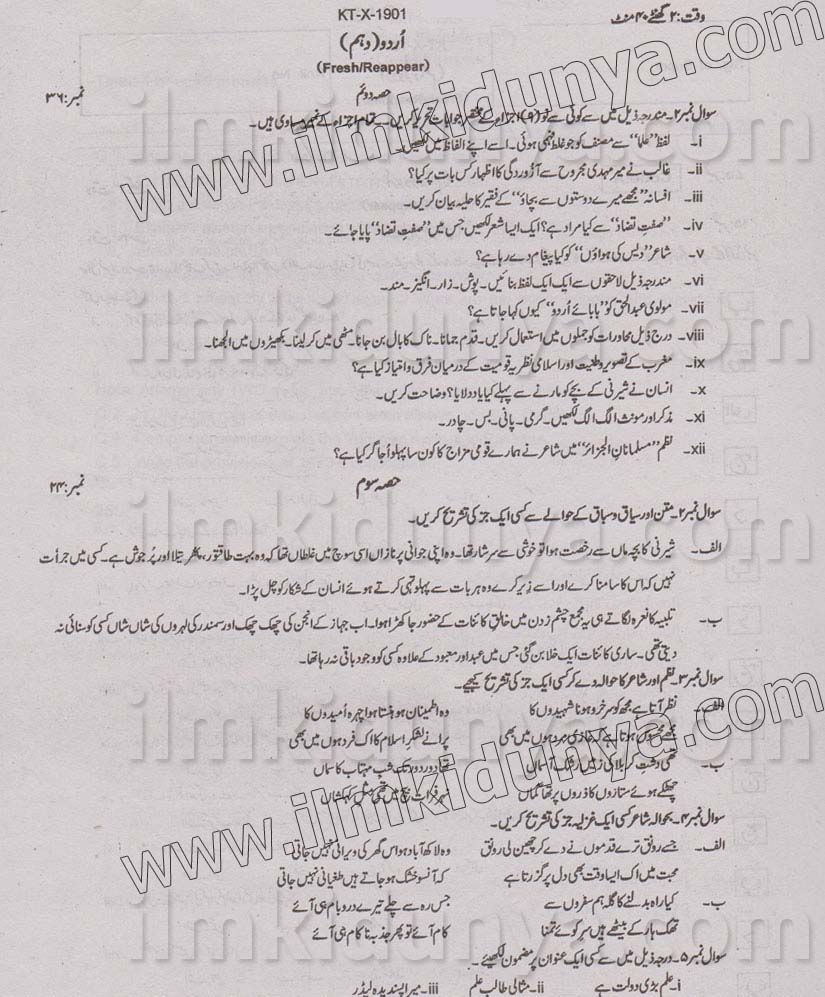 KT-X-1901
وقت: ۲ گھنٹے ۴۰ منٹ
اُردو (دہم)
(Fresh/Reappear)
حصہ دوئم
نمبر: ۳۶
سوال نمبر ۲۔ مندرجہ ذیل میں سے کوئی سے نو (۹) اجزاء کے مختصر جوابات تحریر کریں۔ تمام اجزاء کے نمبر مساوی ہیں۔
i- لفظ ”علما“ سے مصنف کو جو غلط فہمی ہوئی۔ اسے اپنے الفاظ میں لکھیں۔
ii- غالب نے میر مہدی مجروح سے آزُوردگی کا اظہار کس بات پر کیا؟
iii- افسانہ ”مجھے میرے دوستوں سے بچاؤ“ کے فقیر کا حلیہ بیان کریں۔
iv- ”صفتِ تضاد“ سے کیا مراد ہے؟ ایک ایسا شعر لکھیں جس میں ”صفتِ تضاد“ پایا جائے۔
v- شاعر ”دیس کی ہواؤں“ کو کیا پیغام دے رہا ہے؟
vi- مندرجہ ذیل لاحقوں سے ایک ایک لفظ بنائیں۔ پوش۔ زار۔ انگیز۔ مند۔
vii- مولوی عبدالحق کو ”بابائے اُردو“ کیوں کہا جاتا ہے؟
viii- درج ذیل محاورات کو جملوں میں استعمال کریں۔ قدم جمانا۔ ناک کا بال بن جانا۔ مٹھی میں کر لینا۔ بکھیڑوں میں الجھنا۔
ix- مغرب کے تصورِ وطنیت اور اسلامی نظریہ قومیت کے درمیان فرق و امتیاز کیا ہے؟
x- انسان نے شیرنی کے بچے کو مارنے سے پہلے کیا یاد دلایا؟ وضاحت کریں۔
xi- مذکر اور مونث الگ الگ لکھیں۔ گرمی۔ پانی۔ بس۔ چادر۔
xii- نظم ”مسلمانانِ الجزائر“ میں شاعر نے ہمارے قومی مزاج کا کون سا پہلو اُجاگر کیا ہے؟
حصہ سوم
نمبر: ۲۴
سوال نمبر ۲۔ متن اور سیاق و سباق کے حوالے سے کسی ایک جز کی تشریح کریں۔
الف۔ شیرنی کا بچہ ماں سے رخصت ہوا تو خوشی سے سرشار تھا۔ وہ اپنی جوانی پر نازاں اسی سوچ میں غلطاں تھا کہ وہ بہت طاقتور، پھرتیلا اور پُرجوش ہے۔ کسی میں جرأت
نہیں کہ اس کا سامنا کرے اور اسے زیر کرے وہ ہر بات سے پہلو تہی کرتے ہوئے انسان کے شکار کو چل پڑا۔
ب۔ تکبیر کا نعرہ لگاتے ہی یہ مجمع چشم زدن میں خالقِ کائنات کے حضور جا کھڑا ہوا۔ اب جہاز کے انجن کی چھک چھک اور سمندر کی لہروں کی شاں شاں کسی کو سنائی نہ
دیتی تھی۔ ساری کائنات ایک خلا بن گئی جس میں عبد اور معبود کے علاوہ کسی کو وجود باقی نہ رہا تھا۔
سوال نمبر ۳۔ نظم اور شاعر کا حوالہ دے کر کسی ایک جز کی تشریح کیجیے۔
الف۔ نظر آتا ہے مجھ کو سرخرو ہونا شہیدوں کا وہ اطمینان ہو ہنستا ہوا چہرہ اُمیدوں کا
مجھے محسوس ہوتا ہے کہ غازی سرد ہوں میں بھی پرانے لشکرِ اسلام کا اک فرد ہوں میں بھی
ب۔ تھی دشتِ کربلا کی زمیں رشکِ آسماں تھا دور دور تک شبِ مہتاب کا سماں
چھٹکے ہوئے ستاروں کا ذروں پر تھا گماں نہرِ فرات بیچ میں تھی مثلِ کہکشاں
سوال نمبر ۴۔ بحوالہ شاعر کسی ایک غزلیہ جز کی تشریح کریں۔
الف۔ جسے رونق ترے قدموں نے دے کر چھین لی رونق وہ لاکھ آباد ہو اس گھر کی ویرانی نہیں جاتی
محبت میں اک ایسا وقت بھی دل پر گزرتا ہے کہ آنسو خشک ہو جاتے ہیں طغیانی نہیں جاتی
ب۔ کیا راہ بدلنے کا گلہ ہم سفروں سے جس رہ سے چلے تیرے در و بام ہی آئے
تھک ہار کے بیٹھے ہیں سرِ کوئے تمنا کام آئے تو پھر جذبہ ناکام ہی آئے
سوال نمبر ۵۔ درجہ ذیل میں سے کسی ایک عنوان پر مضمون لکھیئے۔
i- علم بڑی دولت ہے ii- مثالی طالب علم iii- میرا پسندیدہ لیڈر
www.ilmkidunya.com
ilmkidunya.com
ilmkidunya.com
ilmkidunya.com
ilmkidunya.com
www.ilmkidunya.com
ilmkidunya.com